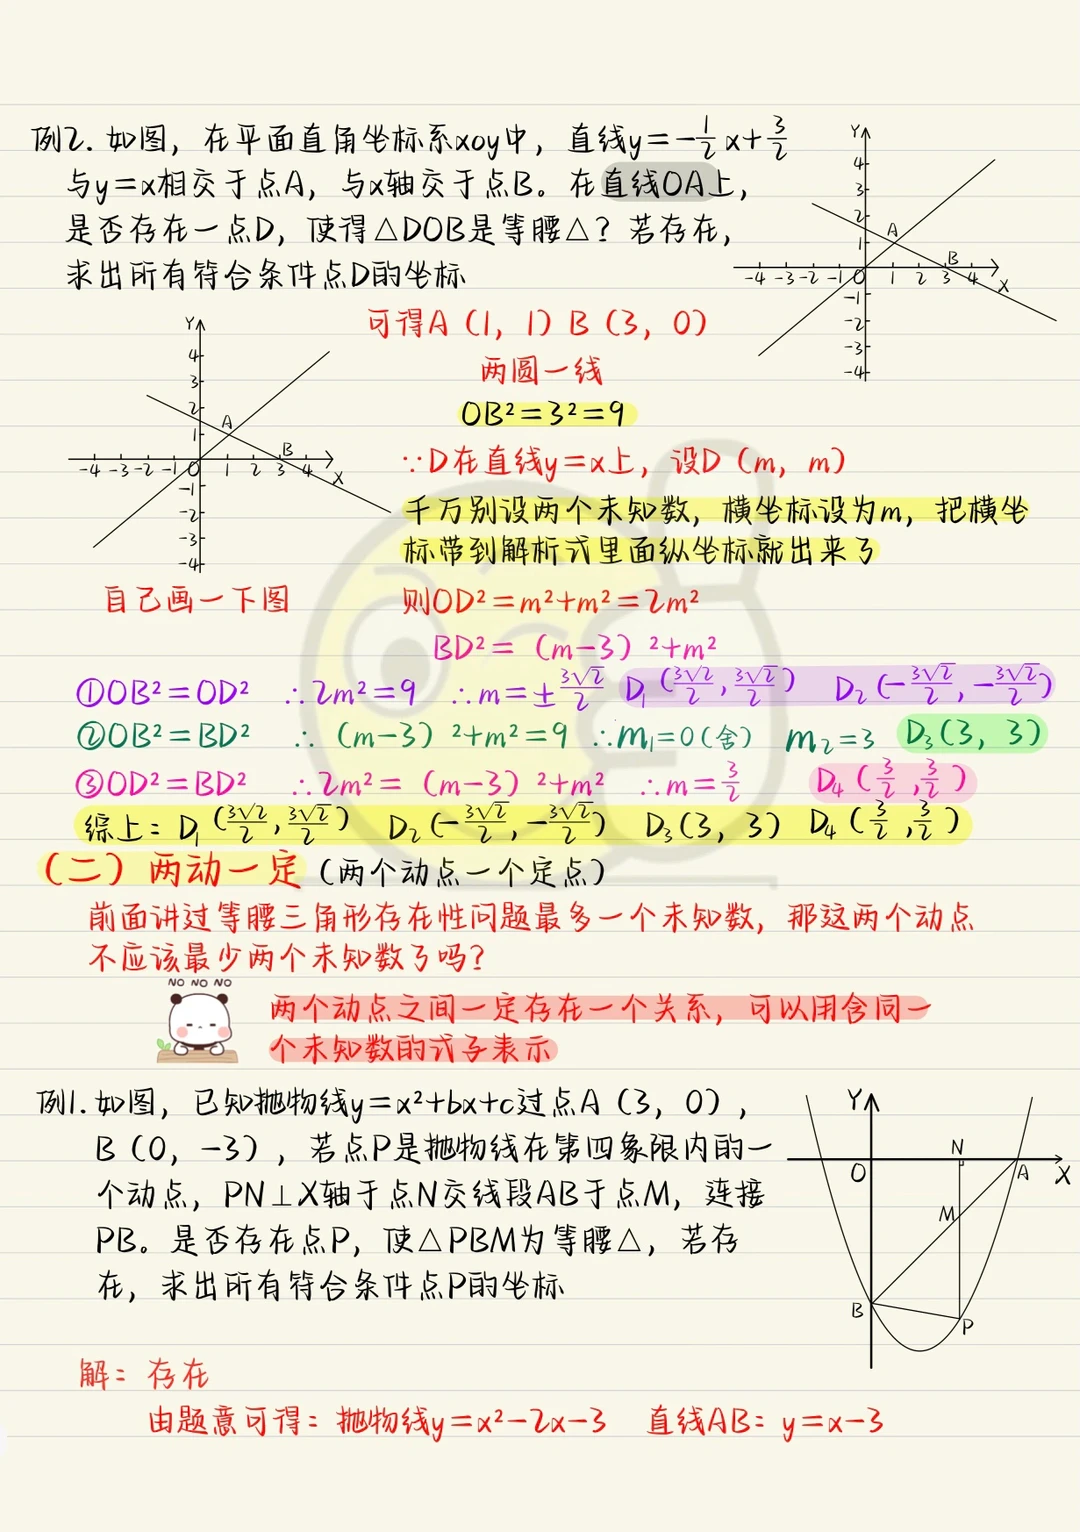 例2. 如图，在平面直角坐标系xoy中，直线y=-1/2 x+3/2
与y=x相交于点A，与x轴交于点B。在直线OA上，
是否存在一点D，使得△DOB是等腰△？若存在，
求出所有符合条件点D的坐标
Y
4
3
2
1
A
B
-4 -3 -2 -1 O 1 2 3 4 X
-1
-2
-3
-4
可得A（1，1）B（3，0）
两圆一线
OB²=3²=9
∵D在直线y=x上，设D（m，m）
千万别设两个未知数，横坐标设为m，把横坐
标带到解析式里面纵坐标就出来了
Y
4
3
2
1
A
B
-4 -3 -2 -1 O 1 2 3 4 X
-1
-2
-3
-4
自己画一下图
则OD²=m²+m²=2m²
BD²=（m-3）²+m²
①OB²=OD² ∴2m²=9 ∴m=±3√2/2 D₁（3√2/2，3√2/2） D₂（-3√2/2，-3√2/2）
②OB²=BD² ∴（m-3）²+m²=9 ∴m₁=0（舍） m₂=3 D₃（3，3）
③OD²=BD² ∴2m²=（m-3）²+m² ∴m=3/2 D₄（3/2，3/2）
综上：D₁（3√2/2，3√2/2） D₂（-3√2/2，-3√2/2） D₃（3，3） D₄（3/2，3/2）
（二）两动一定（两个动点一个定点）
前面讲过等腰三角形存在性问题最多一个未知数，那这两个动点
不应该最少两个未知数了吗？
NO NO NO
两个动点之间一定存在一个关系，可以用含同一
个未知数的式子表示
例1. 如图，已知抛物线y=x²+bx+c过点A（3，0），
B（0，-3），若点P是抛物线在第四象限内的一
个动点，PN⊥X轴于点N交线段AB于点M，连接
PB。是否存在点P，使△PBM为等腰△，若存
在，求出所有符合条件点P的坐标
Y
N
O A X
M
B
P
解：存在
由题意可得：抛物线y=x²-2x-3 直线AB：y=x-3